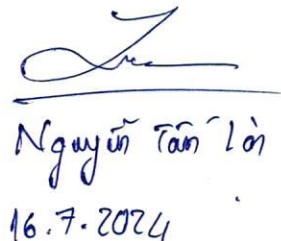 Nguyễn Tấn Lợi
16.7.2024